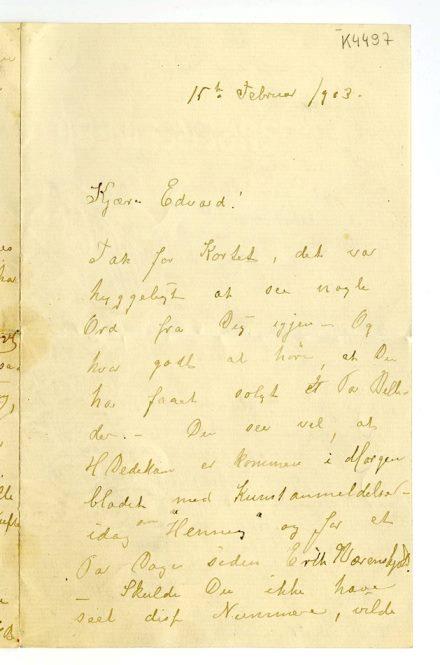 K4497
15th Februar 1903.
Kjære Edvard!
Tak for Kortet, det var
hyggeligt at see nogle
Ord fra Dig igjen – Og
hvor godt at høre, at Du
har faaet solgt et Par Bille-
der. – Du seer vel, at
H Dedekam er kommen i Morgen
bladet med Kunstanmeldelser –
idag om "Henning" og for et
Par Dage siden Erik Werenskjold.
– Skulde Du ikke have
seet disse Nummere, vilde